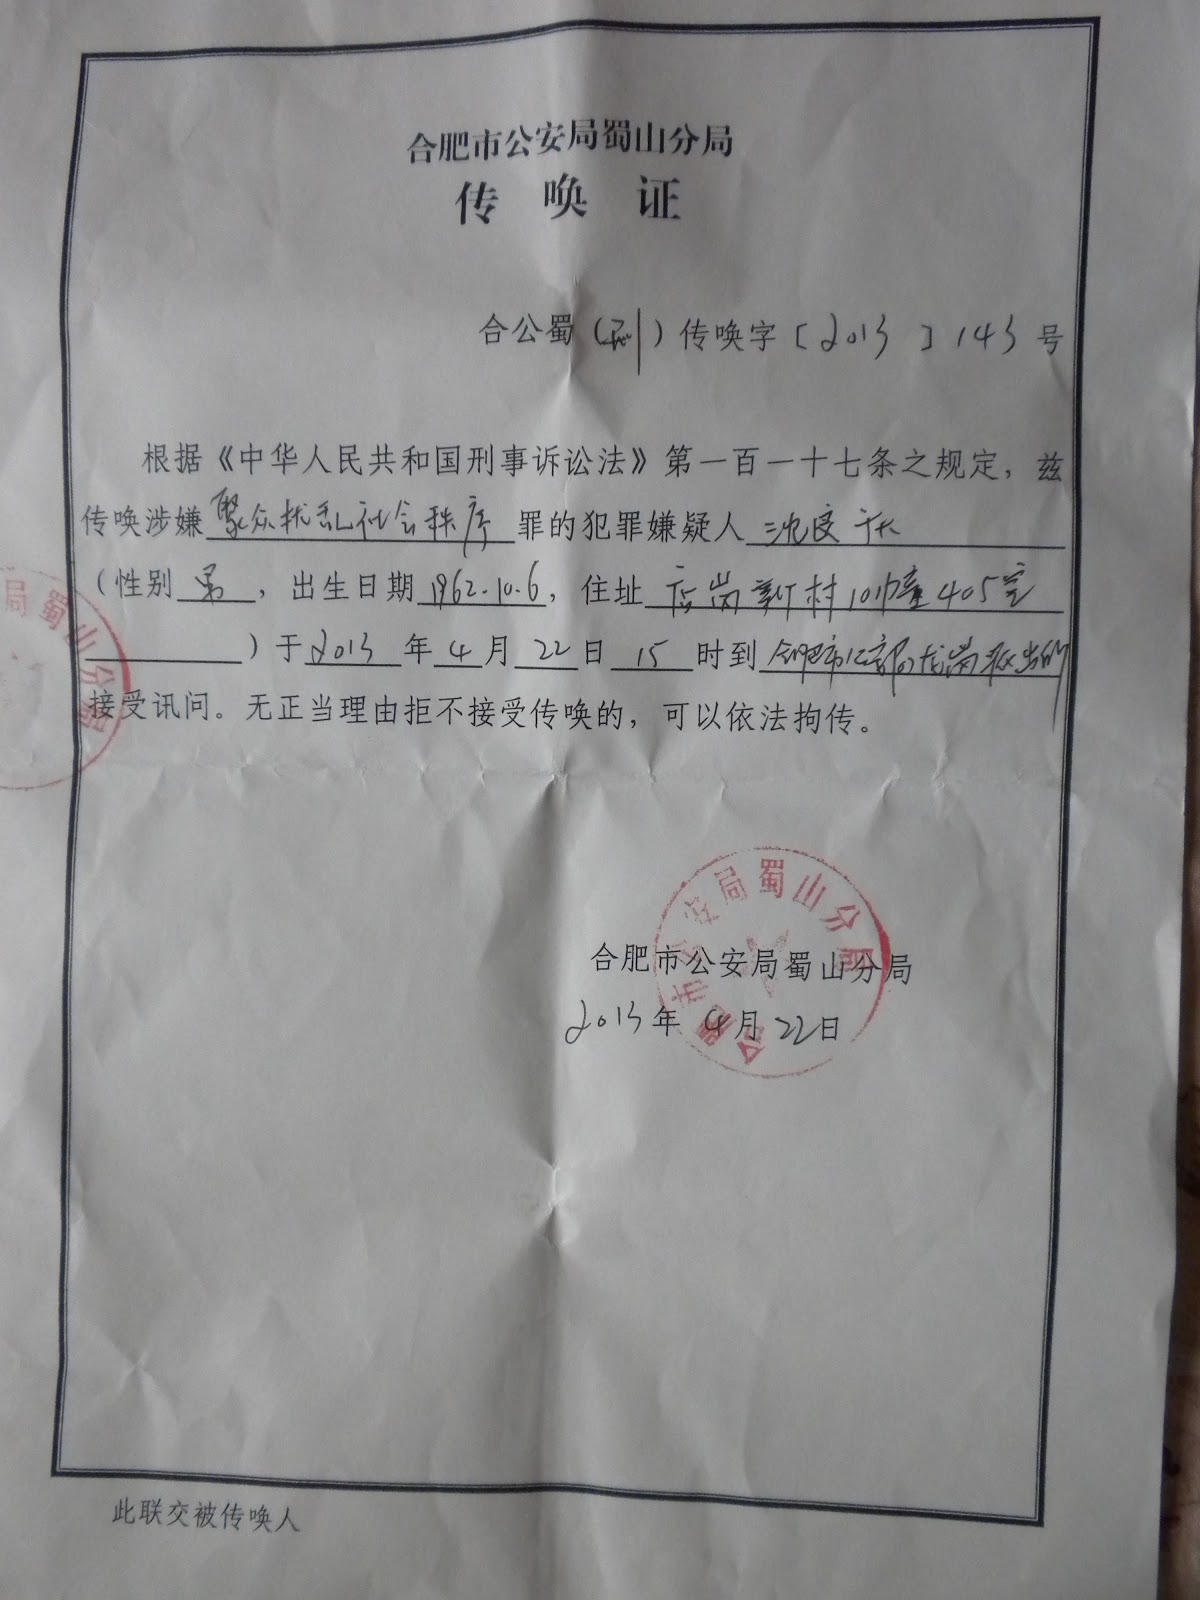 合肥市公安局蜀山分局
传唤证
合公蜀（刑）传唤字〔2013〕143号
根据《中华人民共和国刑事诉讼法》第一百一十七条之规定，兹
传唤涉嫌聚众扰乱社会秩序罪的犯罪嫌疑人沈良庆
（性别男，出生日期1962.10.6，住址岗新村10幢405室
）于2013年4月22日15时到合肥市公安局岗派出所
接受讯问。无正当理由拒不接受传唤的，可以依法拘传。
局蜀山分局
合肥市公安局蜀山分局
合肥市公安局蜀山分局
2013年4月22日
此联交被传唤人